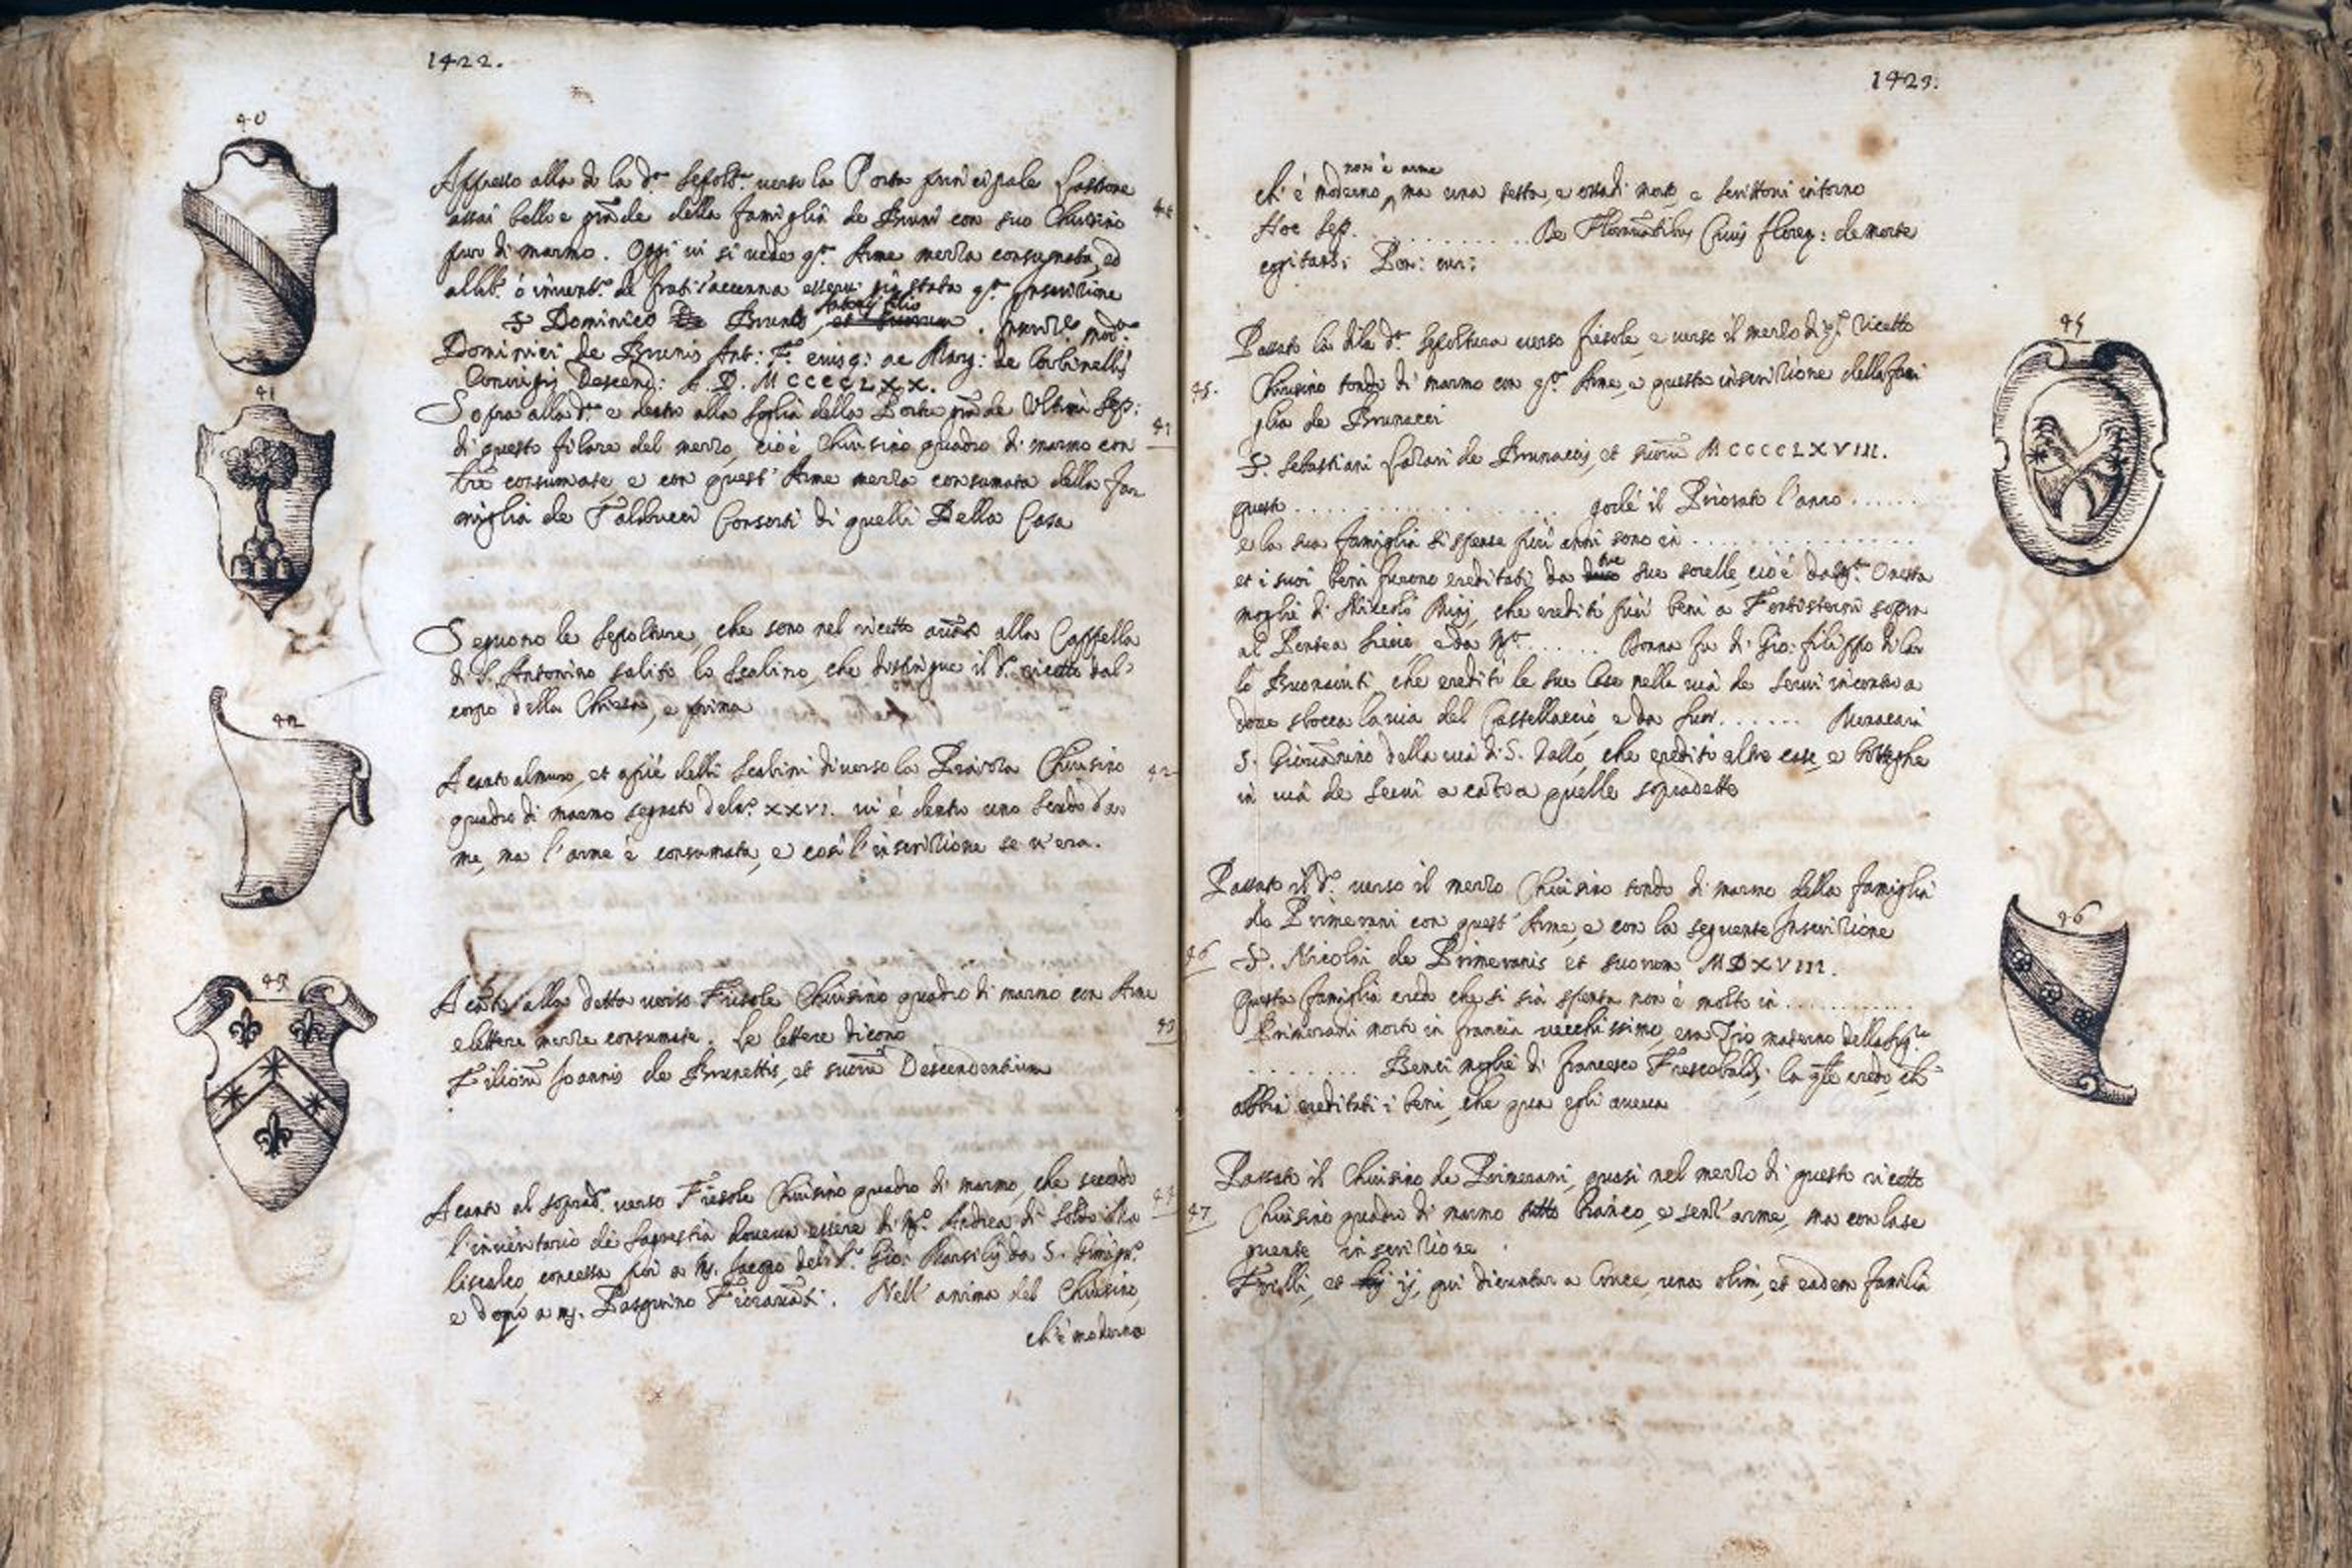 1422.
40
Appresso alla di là d.ª Sepolt.ª verso la Porta principale Lastrone
assai bello e grāde della famiglia de Bruni con suo Chiusino
pur di marmo. Oggi vi si vede q.ª Arme mezza consumata, ed
all' ò invent.º de frati s'accenna esservi già stata q.ª Inscrizione
S Dominico De Bruno, Antonij filio et suorum. Inscriz.e mod.ª
Dominici de Brunis Ant: F. eiusq: ac Marg: de Corbinellis
Coniugis Descend: A. D. MCCCCLXX.
41
Sopra alla d.ª e dentro alla soglia della Porta grāde Ultima Sep:
di questo filare del mezzo, cioè Chiusino quadro di marmo con
consumate e con quest' Arme mezza consumata della fa-
miglia de Falducci Consorti di quelli Della Casa
Seguono le Sepolture, che sono nel ricetto avāti alla Cappella
di S. Antonino salito lo Scalino, che distingue il d.º ricetto dal
corpo della Chiesa, e prima
42
Acanto al muro, et a piè delli Scalini di verso la Chiusino
quadro di marmo segnato del n.º XXVI. vi è dentro uno Scudo d'ar-
me, ma l'arme è consumata, e così l'inscrizione se v'era.
43
Acāto alla detta verso Fiesole Chiusino quadro di marmo con Arme
e lettere mezze consumate. Le lettere dicono
Filiorū Joannis de Brunettis, et suorū Descendentium
44
Acanto al soprad.º verso Fiesole Chiusino quadro di marmo, che secondo
l'inventario di Sagrestia doveva essere di M.º Andrea di
liscalco, concessa poi a M. Jacopo del S.r Gio: Marsilij da S. Gimign.º
e dopo a m. Pasquino Fioravāti. Nell' anima del Chiusino,
ch'è moderno
1423.
ch' è moderno, non è arme ma una testa, e ossa di morto, e scrittoni intorno
Hoc Sep. . . . . . . . . . . De Civis floren: de morte
cogitans: Pon: cur:
45
Passata la di là d.ª Sepoltura verso Fiesole, e verso il mezzo di q.º ricetto
45. Chiusino tondo di marmo con q.ª Arme, e questa inscrizione della fami
glia de Brunacci
S. Sebastiani Lazari de Brunaccis, et suorū MCCCCLXVIII.
questi . . . . . . . . . . . . . . . godé il Priorato l'anno . . . . . .
e la sua famiglia si spense più anni sono in . . . . . . . . . . . . . .
et i suoi beni furono ereditati da due tre sue sorelle, cioè da M.ª Onesta
moglie di Niccolò che eredità più beni a sopra
al e da M.ª . . . . . . Donna fu di Gio: filippo di Car
lo Buonaiuti, che eredità le sue Case nella via de Servi incontro a
dove sbocca la via del Castellaccio, e da Suor . . . . . . Monaca in
S. Giovānino della via di S. Gallo, che eredità altre case, e botteghe
in via de Servi a cāto a quelle sopradette
46
Passato il d.º verso il mezzo Chiusino tondo di marmo della famiglia
de Primerani con quest' Arme, e con la seguente Inscrizione
46 S. Nicolai de Primeranis et suorum MDXVIII.
Questa famiglia credo che si sia spenta non è molto in . . . . . . . . . . .
Primerani morto in francia vecchissimo, era Zio materno della Sig.ra
. . . . . . . . Benci moglie di Francesco Frescobaldi; la qle credo ch'
abbia ereditati i beni, che qua egli aveva
Passato il Chiusino de Primerani, quasi nel mezzo di questo ricetto
47 Chiusino quadro di marmo tutto bianco, e senz' arme, ma con la se
guente inscrizione
et ij, qui dicuntur a Cruce, una olim, et eadem familia